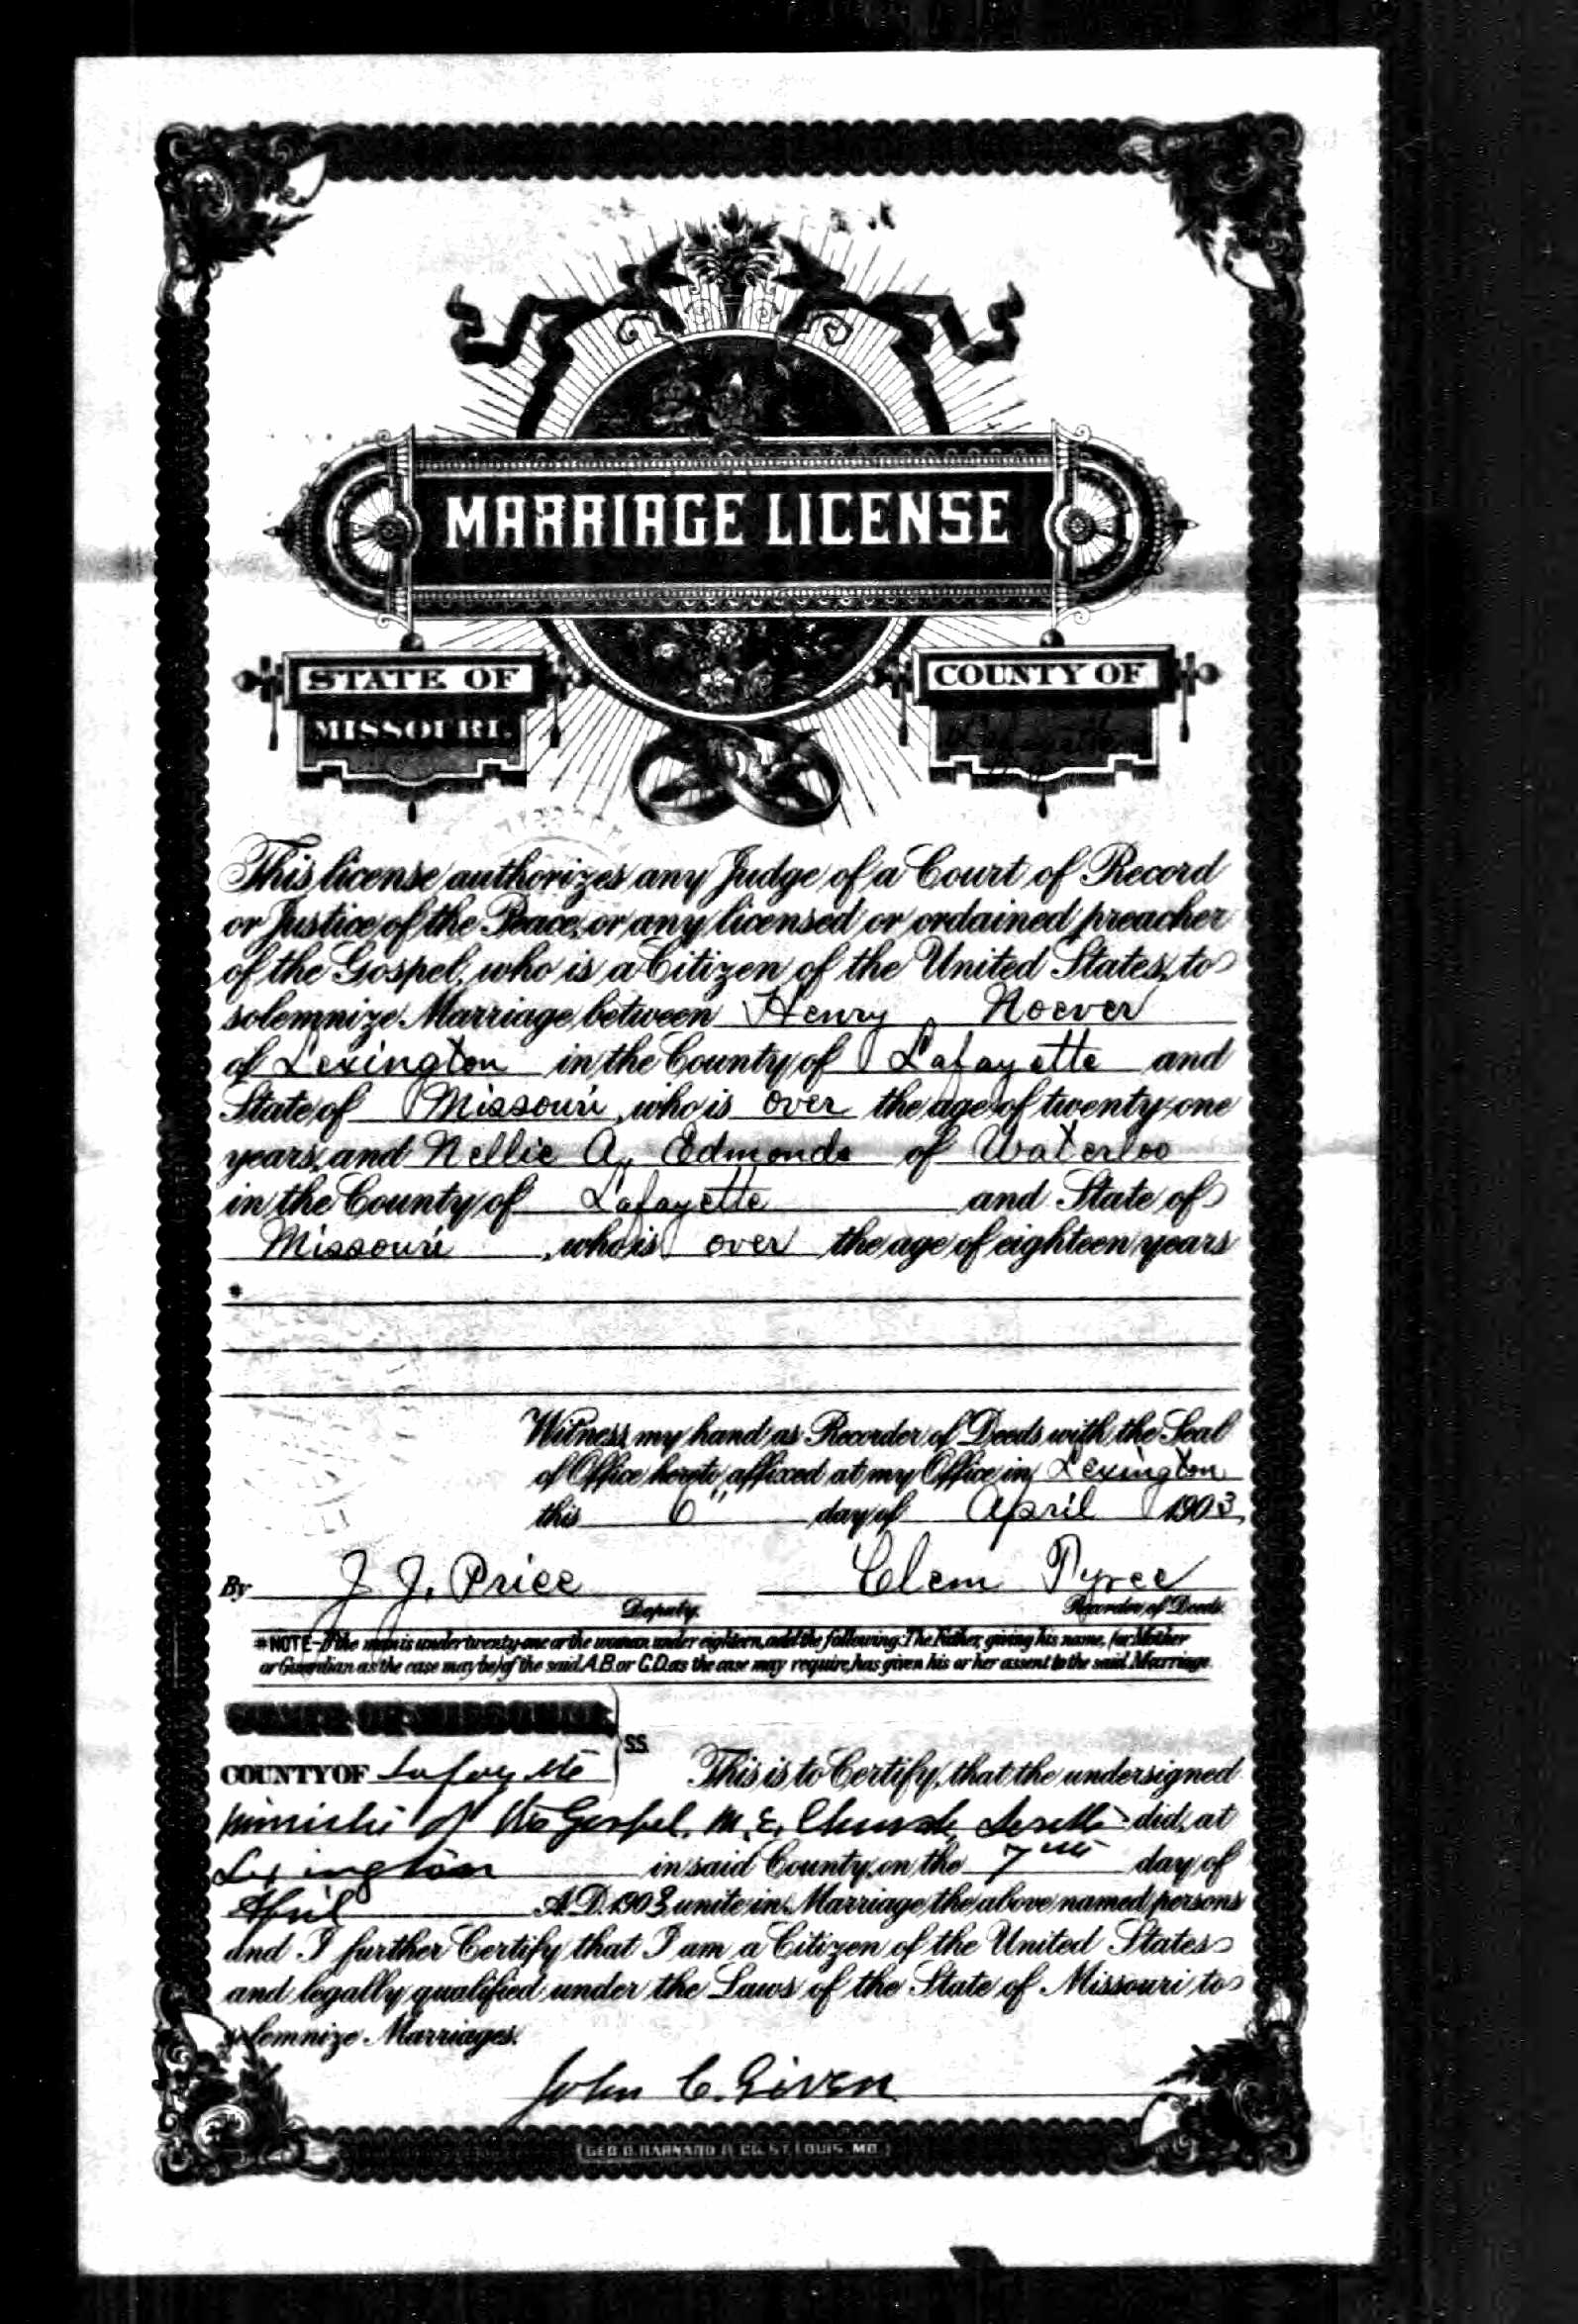 MARRIAGE LICENSE
STATE OF
MISSOURI.
COUNTY OF
Lafayette
This license authorizes any Judge of a Court of Record
or Justice of the Peace, or any licensed or ordained preacher
of the Gospel, who is a Citizen of the United States, to
solemnize Marriage between Henry Noever
of Lexington in the County of Lafayette and
State of Missouri, who is over the age of twenty-one
years, and Nellie A. Edmonds of Waterloo
in the County of Lafayette and State of
Missouri, who is over the age of eighteen years
*
Witness my hand as Recorder of Deeds with the Seal
of Office hereto affixed at my Office in Lexington
this 6" day of April 1903,
By J. J. Price Clem Tyree
Deputy. Recorder of Deeds.
*NOTE-If the man is under twenty-one or the woman under eighteen, add the following: The Father, giving his name, (or Mother
or Guardian as the case may be) of the said A.B. or C.D. as the case may require, has given his or her assent to the said Marriage.
STATE OF MISSOURI,
SS.
COUNTY OF Lafayette This is to Certify, that the undersigned
minister of the Gospel, M. E. Church, South did, at
Lexington in said County, on the 7th day of
April A.D. 1903 unite in Marriage the above named persons
and I further Certify that I am a Citizen of the United States
and legally qualified under the Laws of the State of Missouri to
solemnize Marriages.
John C. Given
GEO. D. BARNARD & CO. ST. LOUIS. MO.